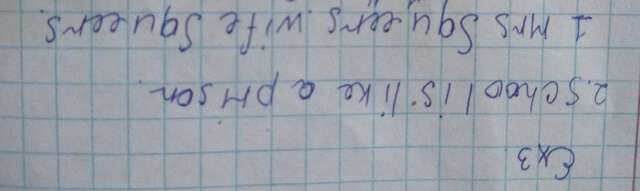 Ex3.
2. School is like a prison.
1 Mrs Squeers wife Squeers.